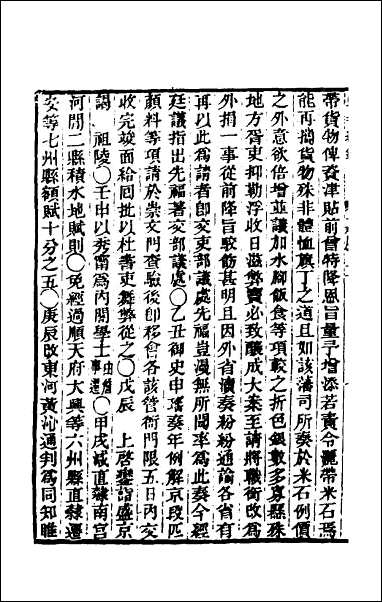 帶貨物俾資津貼前曾特降恩旨量予增添若責令灑帶米石焉
能再擕貨物殊非體恤旗丁之道且如該藩司所奏於米石例價
之外意欲倍增並議加水脚飯食等項較之折色銀數多寡縣殊
地方胥吏抑勒浮收日滋弊竇必致釀成大案至請將職銜改爲
外捐一事從前降旨駮飭甚明且因外省瀆奏紛紛通諭各省有
再以此爲請者卽交吏部議處先福豈漫無所聞率爲此奏今經
廷議指出先福著交部議處〇乙丑御史申瑤奏年例解京段匹
顏料等項請於崇文門查驗後卽移會各該管衙門限五日内交
收完竣面給回批以杜書吏舞弊從之〇戊辰　上啓鑾詣盛京
謁　祖陵〇壬申以秀甯爲内閣學士由詹事遷〇甲戌減直隸南宮
河間二縣積水地賦則〇免經過順天府大興等六州縣直隸遷
安等七州縣額賦十分之五〇庚辰改東河黃沁通判爲同知睢